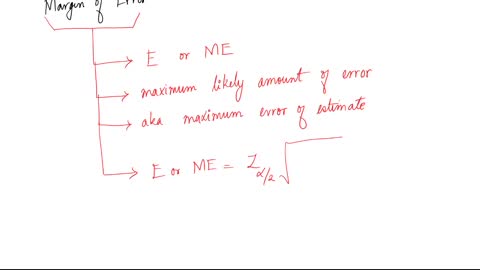 Margin of Error
E or ME
maximum likely amount of error
aka maximum error of estimate
E or ME = Z_{α/2} √